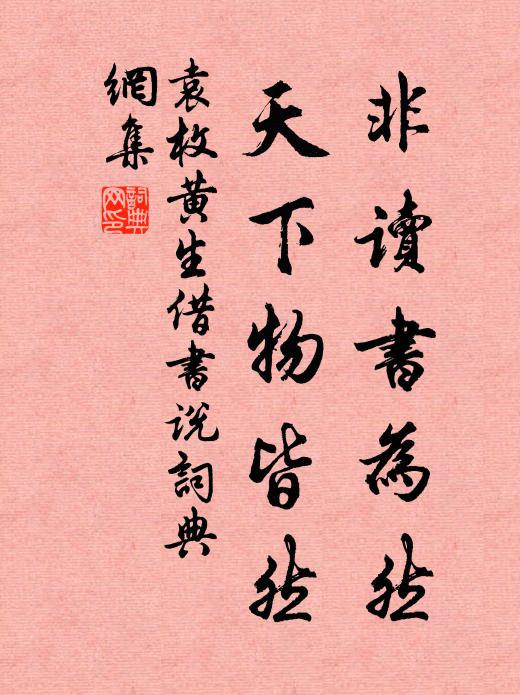 非讀書為然
天下物皆然
袁枚黄生借書说詞典
網集
詞典
网印